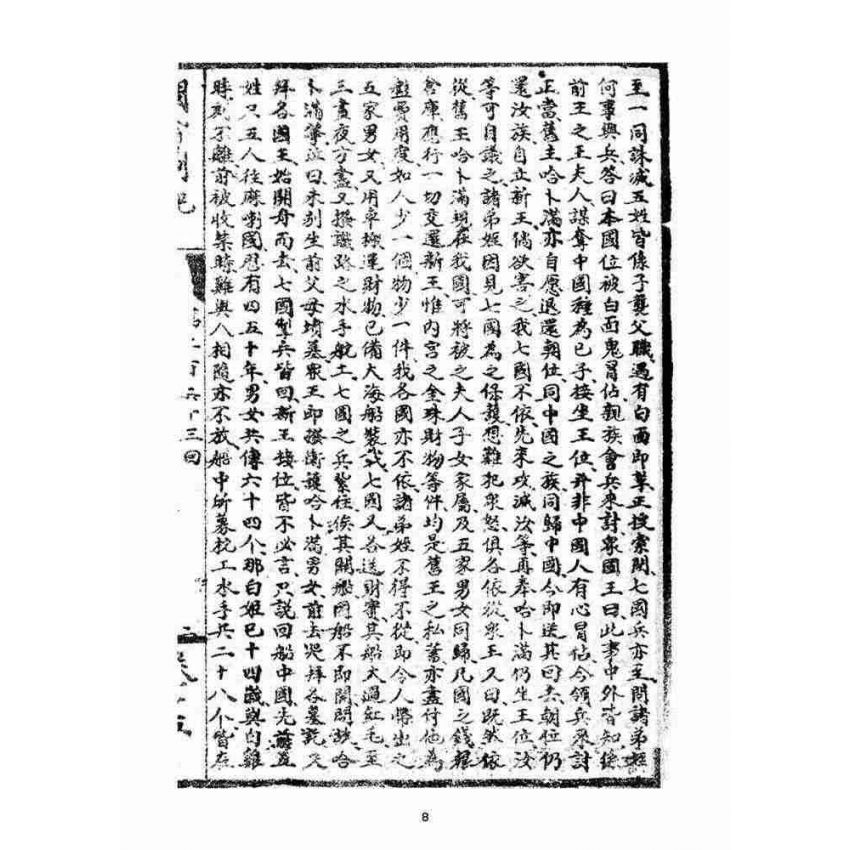 至一同誅滅五姓皆係子襲父職遇有白面即拿正搜索閙七國兵亦至問諸弟姪
何事與兵答曰本國位被白面鬼冒佔親族會兵來討衆國王曰此事中外皆知係
前王之王夫人謀奪中國種為已子接坐王位并非中國人有心冒佔今領兵來討
正當舊主哈卜滿亦自愿退還朝位同中國之族同歸中國今即送其回去朝位仍
還汝族自立新王倘欲害之我七國不依先來攻滅汝等再奉哈卜滿仍坐王位汝
等可自議之諸弟姪因見七國為之保護想難把衆怒俱各依從衆王又曰既然依
從舊王哈卜滿現在我國可將被之夫人子女家屬及五家男女同歸凡國之錢糧
倉庫應行一切交還新王惟內宮之金珠財物等件均是舊王之私蓄亦盡付他為
盤費用度如人少一個物少一件我各國亦不依諸弟姪不得不從即令人帶出之
五家男女又用車搬運財物已備大海船裝式七國又各送財寶其船太過紅毛至
三晝夜方盡又撥識路之水手舵工七國之兵紮住俟其開船問船不即開問哈
卜滿揮泣曰未别生前父母墳墓衆王即撥衛護哈卜滿男女前去哭拜各墓訖又
拜各國王始開舟而去七國掣兵皆回新王接位皆不必言只說回船中國先前五
姓只五人往麻喇國想有四五十年男女共傳六十四個那白姬已十四歲與白雞
時刻不離前被收禁時雞與人相隨亦不放船中所募舵工水手共二十八個皆在
第二百五十三回
8